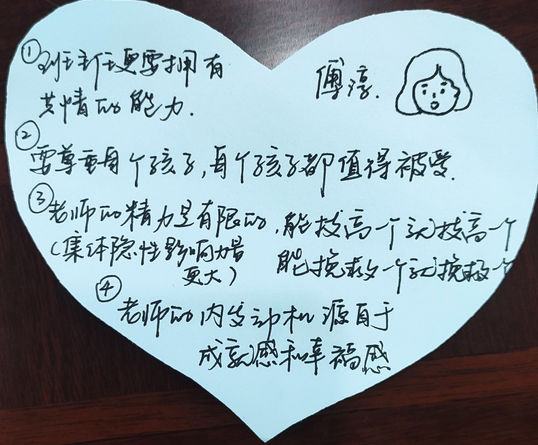 ①班主任更要拥有
共情的能力.
傅淳.
②
要尊重每个孩子,每个孩子都值得被爱.
③老师的精力是有限的,能拔高一个就拔高一个
(集体隐性影响力量
更大)
能挽救一个就挽救一个
④
老师的内发动机源自于
成就感和幸福感